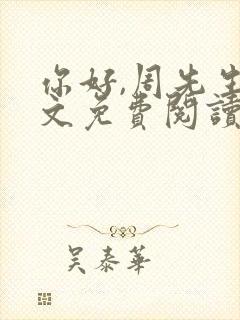 你好,周先生
文免費閱讀
吴泰華